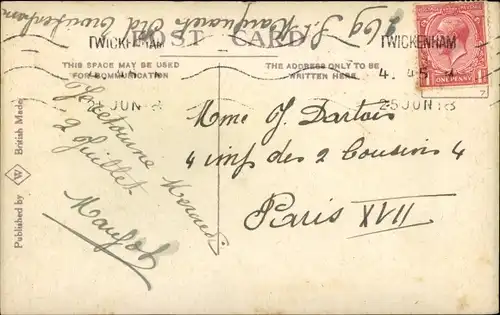 169 St Margareth Rd Twickenham
TWICKENHAM
POST CARD
TWICKENHAM
THIS SPACE MAY BE USED
FOR COMMUNICATION
THE ADDRESS ONLY TO BE
WRITTEN HERE
4. 45
25 JUN
JUN
ONE PENNY
Je retourne Mercredi
2 Juillet
Mme J. Dartois
4 imp des 2 Cousins 4
Paris XVII
Published by W British Made